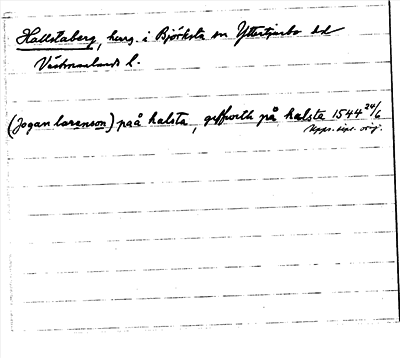 Hallstaberg, herrg. i Björksta sn Yttertjurbo hd
Västmanlands l.
(Jogan larenson) paå halsta, giffworth på halsta 1544 24/6
Upps. dipl. orig.